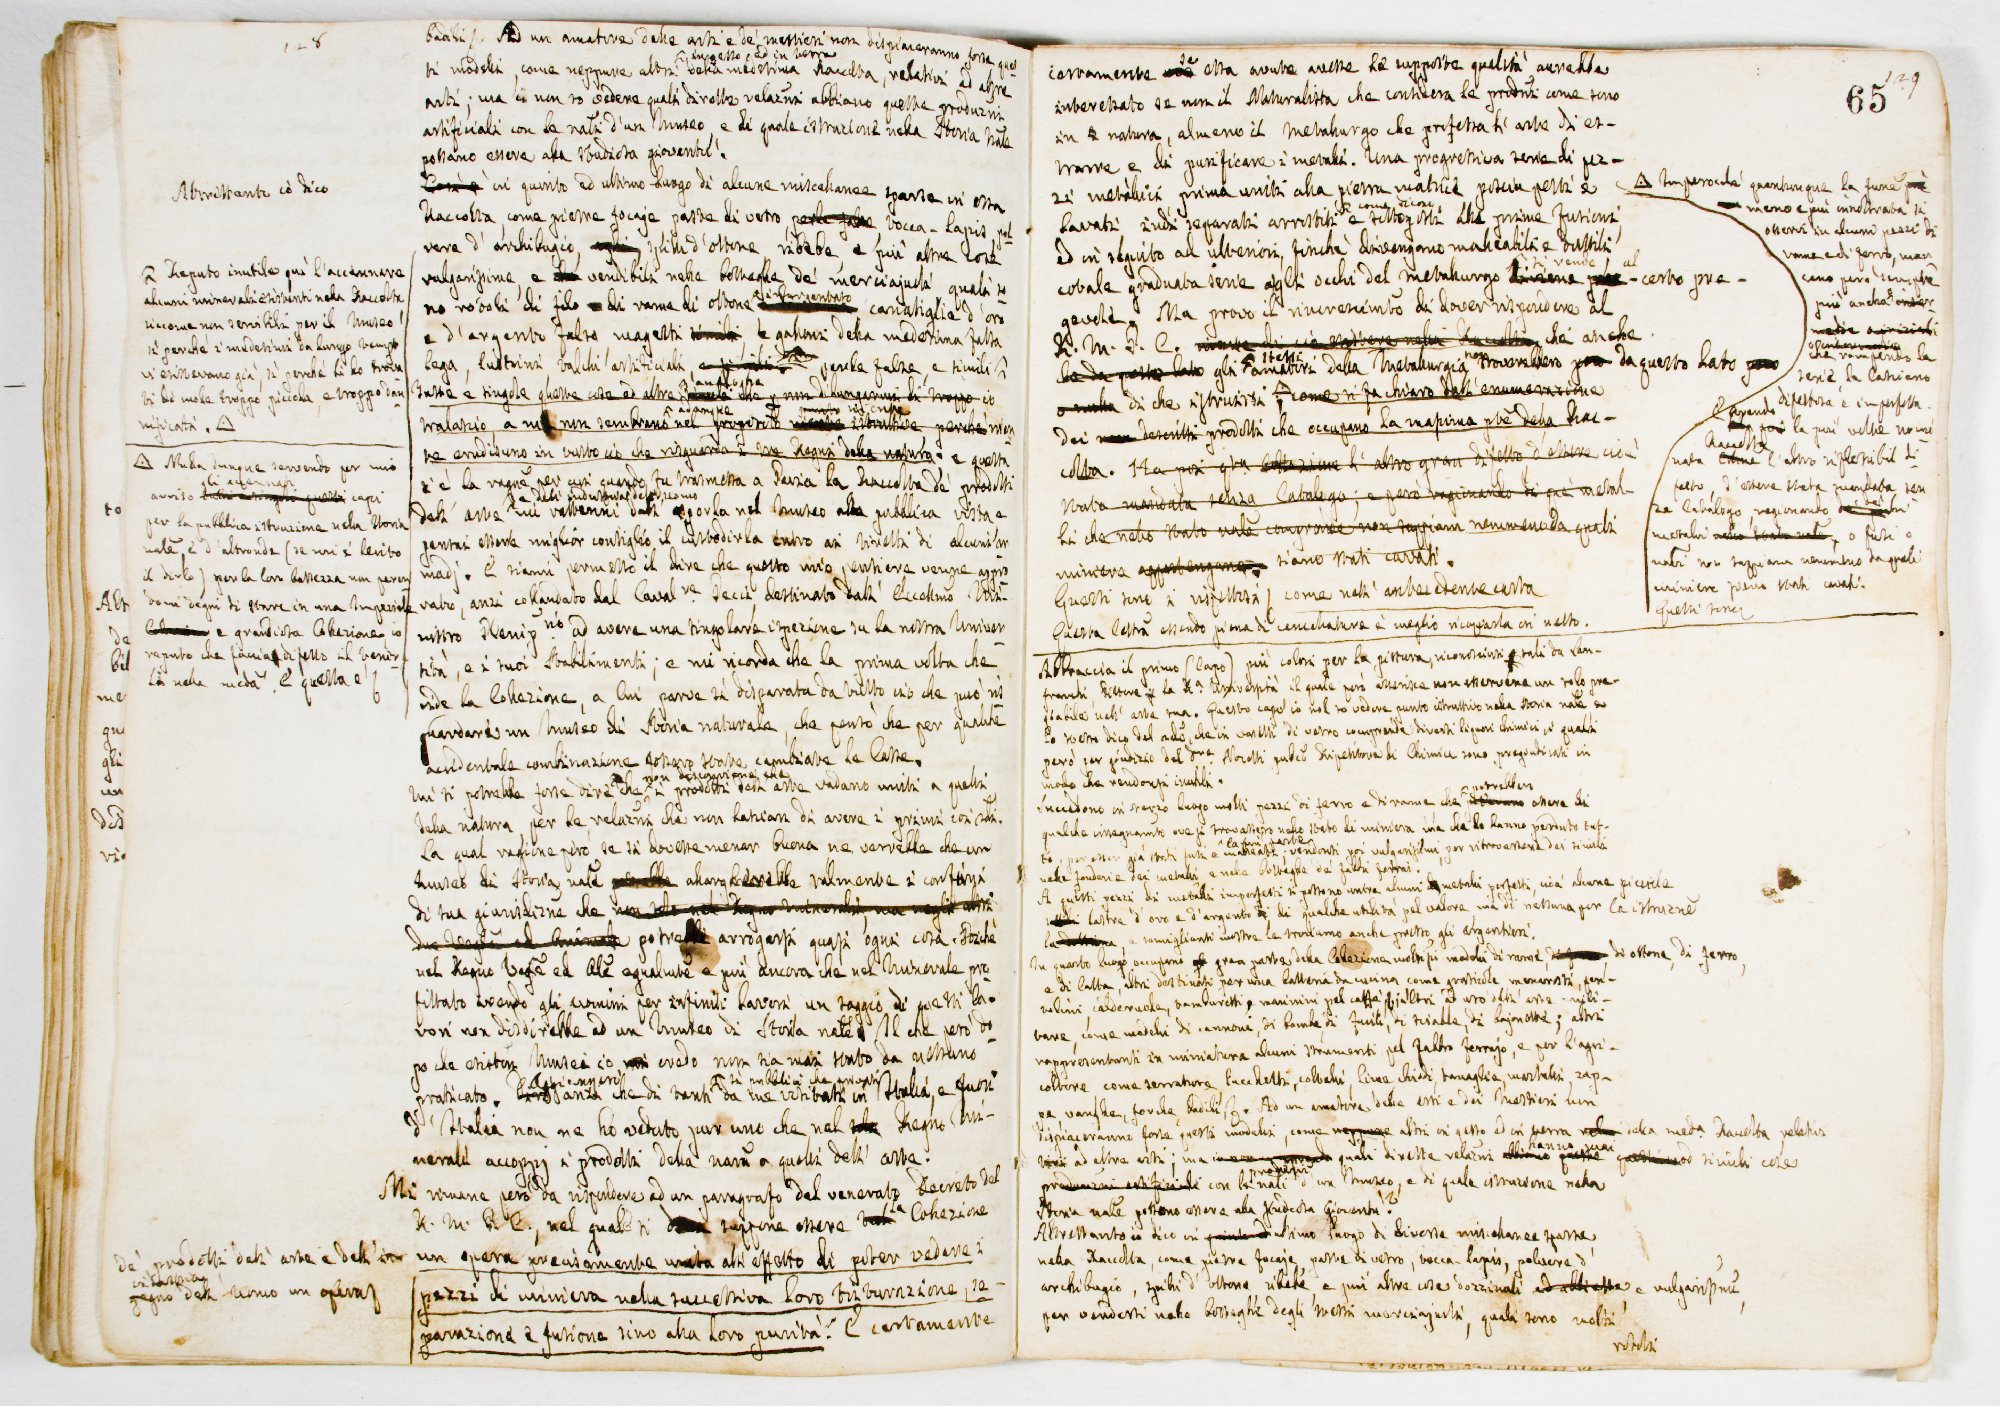 128
badili &. Ad un amatore delle arti e de' mestieri non dispiaceranno forse ques
in gesso, ed in terra
ti modelli, come neppure altri della medesima Raccolta, relativi ad altre
arti; ma io non so vedere quali dirette relazni abbiano queste produzni
artificiali con le nali d'un Museo, e di quale istruzione nella Storia nale
possano essere alla studiosa gioventù.
in quinto ed ultimo luogo di alcune miscellanee sparse in essa
Raccolta come pietre focaje paste di vetro perle false tocca-lapis pol
vere d'archibugio, spilli d'ottone ribebe, e più altre cose
volgarissime, e vendibili nelle botteghe de' merciajuoli quali so
no rotoli di filo di rame di ottone inargentato canatiglie d'oro
e d'argento falso magetti simili, e galloni della medesima falsa
lega, lustrini talchi artificiali, perle false, e simili
analoghe
Tutte e singole queste cose ed altre che p non dilungarmi di troppo io
adunque
tralascio, a me non sembrano nel proposito istruttive perché niente
te erudiscono in tutto ciò che risguarda i tre Regni della natura. e questa
si è la ragne per cui quando fu trasmessa a Pavia la Raccolta de' prodotti
dell'arte mi rattenni dall'esporla nel Museo alla pubblica vista e
pensai essere miglior consiglio il custodirla entro ai tiretti di alcuni ar
madj. E siami permesso il dire che questo mio pensiere venne appro
vato, anzi collaudato dal Cavalre. Pecci destinato dall'Eccellmo Mini-
nistro Plenip.rio ad avere una singolare ispezione su la nostra Univer
sità, e i suoi stabilimenti; e mi ricorda che la prima volta che
vide la Collezione, a lui parve sì disparata da tutto ciò che può ri
guardare un Museo di Storia naturale, che pensò che per qualche
accidentale combinazione fossero state cambiate le casse.
non disconviene che
Mi si potrebbe forse dire che i prodotti dell'arte vadano uniti a quelli
della natura, per le relazni che non lasciano di avere i primi coi sdi.
La qual ragione però se si dovesse menar buona ne verrebbe che un
Museo di Storia nale allargherebbe talmente i confini
di sua giurisdizne che non solo nel Regno minerale, ma negli altri
due Vegle ed Animale potrebbe arrogarsi quasi ogni cosa. Poiché
nel Regno Vegle ed Ale egualmte e più ancora che nel Minerale pro
fittato avendo gli uomini per infiniti lavori un saggio di questi la-
vori non disdirebbe ad un Museo di Storia nale. Il che però do
po che esistono Musei io credo non sia mai stato da nessuno
sì pubblici che privati
praticato. anzi che di tanti da me visitati in Italia, e fuori
d'Italia non ne ho veduto pur uno che nel Regno Mi-
nerale accoppj i prodotti della natura a quelli dell'arte.
Mi rimane però da rispondere ad un paragrafo del venerato Decreto del
R. M. P. C., nel quale si suppone essere la Collezione
un opera precisamente unita all'effetto di poter vedere i
pezzi di miniera nella successiva loro triturazione, se-
parazione e fusione sino alla loro purità. E certamente
Altrettanto io dico
Reputo inutile quì l'accennare
alcuni minerali esistenti nella Raccolta
siccome non servibili per il Museo
sì perché i medesimi da lungo tempo
vi esistevano già, sì perché li ho trova
ti di mole troppo picciola, e troppo dan
nificati.
Nulla dunque servendo per mio
gli accennati
avviso capi
per la pubblica istruzione nella Storia
nale, e d'altronde (se mi è lecito
il dirlo) per la loro bassezza non paren
domi degni di stare in una Imperiale
e grandiosa Collezione, io
reputo che faccia difetto il veder-
li nella meda. E questa è
de' prodotti dell'arte e dell'in
gegno dell'uomo un opera
129
65
certamente se essa avute avesse le supposte qualità avrebbe
interessato se non il Naturalista che considera le produzni come sono
in natura, almeno il Metallurgo che professa l'arte di es-
trarre e di purificare i metalli. Una progressiva serie di pez-
zi metallici, prima uniti alla pietra matrice poscia pesti e
lavati indi separati arrostiti e sottoposti alle prime fusioni,
ed in seguito ad ulteriori, finché divengono malleabili e duttili,
si rende al
cotale graduata serie agli occhi del Metallurgo certo pre-
gevole. Ma provo il rincrescimto di dover rispondere al
R. M. P. C. che anche
stessi
gli amatori della Metallurgia non troverebbero da questo lato
di che istruirsi come si fa chiaro dall'enumerazione
dei descritti prodotti che occupano la massima pte della Rac-
colta. Ha poi qta Collezione l'altro gran difetto d'essere cioè
stata mandata senza Catalogo; e però ragionando di que' metal-
li che nello stato nale non sappiamo nemmeno da quali
miniere siano stati cavati.
Questi sono i riflessi, come nell'antecedente carta
Questa lettra essendo piena di cancellature è meglio ricopiarla in netto.
Imperocché quantunque la fusne
meno e più inoltrata si
osservi in alcuni pezzi di
rame e di ferro, man
cano però sempre
più anche
che rompendo la
serie la lasciano
difettosa e imperfetta.
Avendo la più volte nomi
nata Raccolta l'altro riflessibil di
fetto, d'essere stata mandata sen
za Catalogo, ragionando
metalli, o fusi o
nali non sappiamo nemmeno da quali
miniere sieno stati cavati.
Questi sono
Abbraccia il primo (Capo) più colori per la pittura, riconosciuti tali da Lan-
franchi Pittore p la Ra. Università il quale però asserisce non esservene un solo pre-
giabile nell'arte sua. Questo capo io nol so vedere punto istruttivo nella Storia nale.
Lo stesso dico del sdo, che in vasetti di vetro comprende diversi liquori chimici, i quali
però per giudizio del Dre. Nocetti pubco. Ripetitore di Chimica sono pregiudicati in
modo che rendonsi inutili.
Succedono in terzo luogo molti pezzi di ferro e di rame che potrebbero essere di
qualche insegnamto ove si trovassero nello stato di miniera ma che lo hanno perduto tut-
to, per esser già stati fusi e malleati, vendonsi poi volgarissimi, per ritrovarsene dei simili
nelle fonderie dei metalli e nelle botteghe de' fabbri ferrai.
A questi pezzi di metalli imperfetti si possono unire alcuni metalli perfetti, cioè alcune picciole
lastre d'oro e d'argento di qualche utilità pel valore, ma di nessuna per la istruzne
e somiglianti mostre le troviamo anche presso gli argentieri.
In quarto luogo occupano gran parte della Collezione moltissi modelli di rame, di ottone, di ferro,
e di latta, altri destinati per una batteria da cucina come graticole menarosti, pen-
tolini calderuole, tamburetti, e macinini pel caffè, altri ad uso dell'arte mili-
tare, come modelli di cannoni, di bombe di fucili, di sciable, di bajonette; altri
rappresentanti in miniatura alcuni strumenti pel fabbro ferrajo, e per l'agri-
coltore come serrature lucchetti, coltelli, lime chiodi, tanaglie, martelli, zap-
pe vanghe, forche badili &. Ad un amatore delle arti e dei mestieri non
dispiaceranno forse questi modelli, come altri in gesso ed in terra della meda. Raccolta relativi
ad altre arti; ma quali dirette relazni hanno mai simili cose
produzioni artifiziali con le nali d'un Museo, e di quale istruzione nella
Storia nale possono essere alla studiosa Gioventù?
Altrettanto io dico in ultimo luogo di diverse miscellanee sparse
nella Raccolta, come pietre focaje, paste di vetro, tocca-lapis, polvere d'
archibugio, spilli d'ottone ribebe e più altre cose dozzinali e volgarissime,
per vendersi nelle botteghe degli stessi merciajuoli, quali sono molti
rotoli